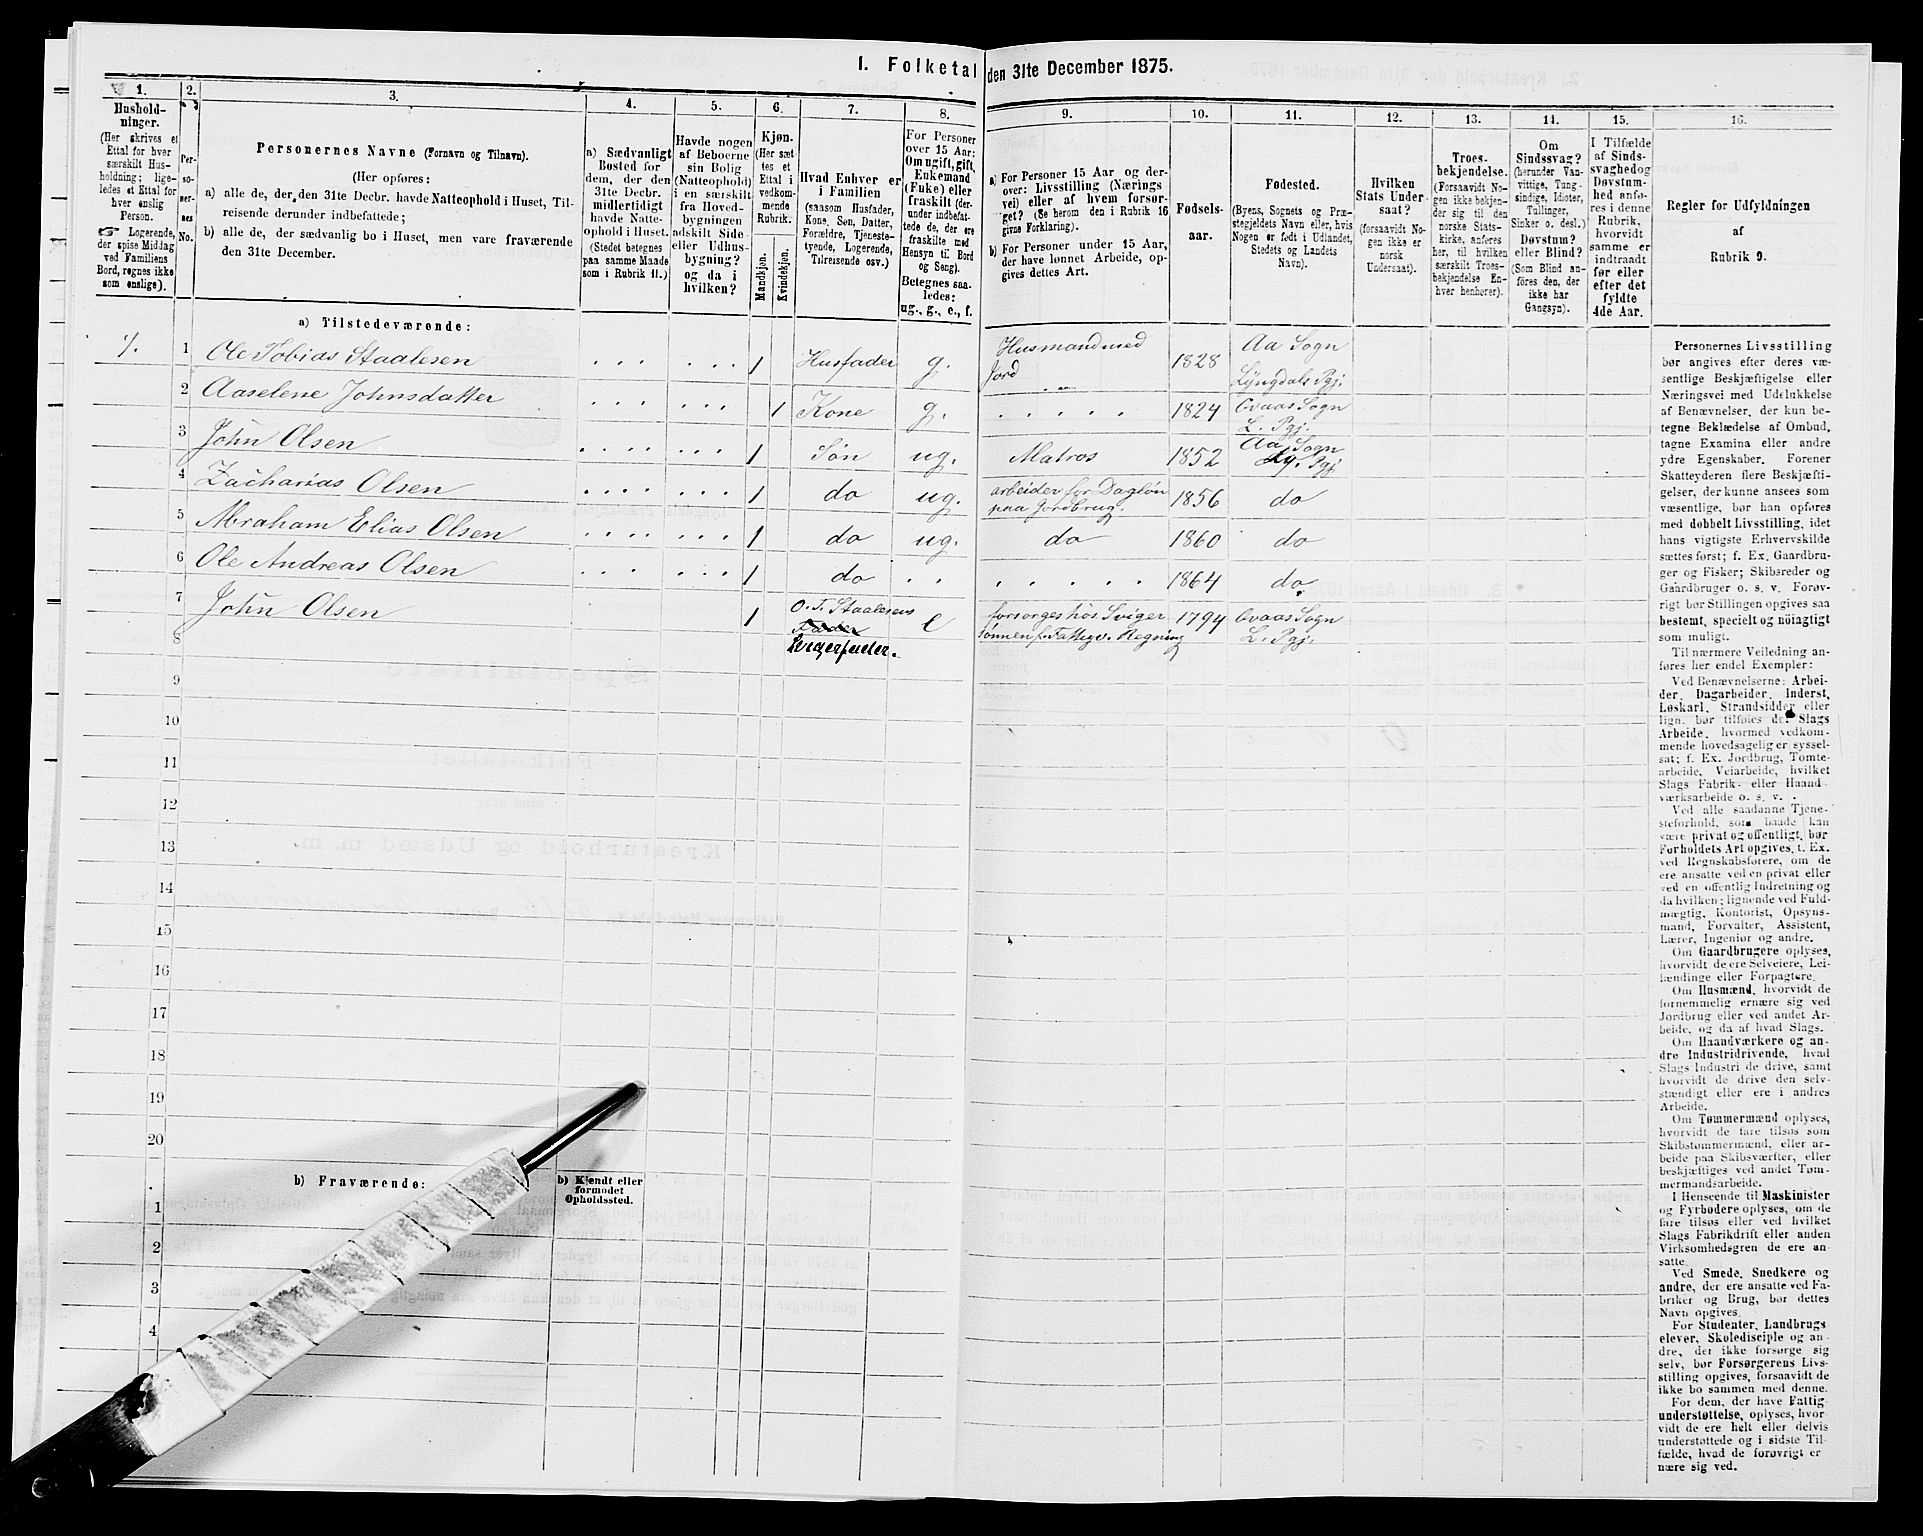 I. Folketal den 31te December 1875.
1.
Hushold-
ninger.
(Her skrives et
Ettal for hver
særskilt Hus-
holdning; lige-
ledes et Ettal for
hver enslig
Person.
Logerende,
der spise Middag
ved Familiens
Bord, regnes ikke
som enslige).
2.
Per-
so-
ner-
nes
No.
3.
Personernes Navne (Fornavn og Tilnavn).
(Her opføres:
a) alle de, der den 31te Decbr. havde Natteophold i Huset, Til-
reisende derunder indbefattede;
b) alle de, der sædvanlig bo i Huset, men vare fraværende
den 31te December.
4.
a) Sædvanligt
Bosted for
dem, der den
31te Decbr.
midlertidigt
havde Natte-
ophold i Huset.
(Stedet betegnes
paa samme Maade
som i Rubrik 11.)
5.
Havde nogen
af Beboerne
sin Bolig
(Natteophold)
i en særskilt
fra Hoved-
bygningen
adskilt Side-
eller Udhus-
bygning?
og da i
hvilken?
6.
Kjøn.
(Her sæt
tes et
Ettal i
vedkom-
mende
Rubrik.
Mandkjøn.
Kvindekjøn.
7.
Hvad Enhver er
i Familien
(saasom Husfader,
Kone, Søn, Datter,
Forældre, Tjeneste-
tyende, Logerende,
Tilreisende osv.)
8.
For Personer
over 15 Aar:
Om ugift, gift,
Enkemand
(Enke) eller
fraskilt (der-
under indbefat-
tede de, der ere
fraskilte med
Hensyn til Bord
og Seng).
Betegnes saa-
ledes:
ug., g., e., f.
9.
a) For Personer 15 Aar og der-
over: Livsstilling (Nærings
vei) eller af hvem forsør-
get? (Se herom den i Rubrik 16
givne Forklaring).
b) For Personer under 15 Aar,
der have lønnet Arbeide, op-
gives dettes Art.
10.
Fødsels-
aar.
11.
Fødested.
(Byens, Sognets og Præ-
stegjeldets Navn eller, hvis
Nogen er født i Udlandet,
Stedets og Landets
Navn).
12.
Hvilken
Stats Under-
saat?
(forsaavidt No-
gen ikke er
norsk
Undersaat).
13.
Troes-
bekjendelse.
(Forsaavidt No-
gen ikke bekjen-
der sig til den
norske Stats-
kirke, anføres
her, til hvilken
særskilt Troes-
bekjendelse En-
hver henhører).
14.
Om
Sindssvag?
(herunder Van-
vittige, Tung-
sindige, Idioter,
Tullinger,
Sinker o. desl.)
Døvstum?
eller Blind?
(Som Blind an-
føres den, der
ikke har
Gangsyn).
15.
I Tilfælde
af Sinds-
svaghed og
Døvstum-
hed anfø-
res i denne
Rubrik,
hvorvidt
samme er
indtraadt
før eller
efter det
fyldte
4de Aar.
16.
Regler for Udfyldningen
af
Rubrik 9.
a) Tilstedeværende:
1. 1 Ole Tobias Staalesen 1 Husfader g. Husmand med Jord 1828 Aa Sogn Lyngdals Pgj.
2 Aaselene Johnsdatter 1 Kone g. 1824 Qvaas Sogn L. Pgj.
3 John Olsen 1 Søn ug. Matros 1852 Aa Sogn Ly. Pgj
4 Zacharias Olsen 1 do ug. arbeider for Dagløn paa Jordbrug. 1856 do
5 Abraham Elias Olsen 1 do ug. do 1860 do
6 Ole Andreas Olsen 1 do 1864 do
7 John Olsen 1 O. T. Staalesens Fader Svigerfader. e forsørges hos Sviger sønnen f. Fattigv. Regning 1794 Qvaas Sogn L. Pgj.
8
9
10
11
12
13
14
15
16
17
18
19
20
b) Fraværende:
b) Kjendt eller
formodet
Opholdssted.
1
2
3
4
Personernes Livsstilling
bør angives efter deres væ-
sentlige Beskjæftigelse eller
Næringsvei med Udelukkelse
af Benævnelser, der kun be-
tegne Beklædelse af Ombud,
tagne Examina eller andre
ydre Egenskaber. Forener
Skatteyderen flere Beskjæfti-
gelser, der kunne ansees som
væsentlige, bør han opføres
med dobbelt Livsstilling, idet
hans vigtigste Erhvervskilde
sættes først; f. Ex. Gaardbru-
ger og Fisker; Skibsreder og
Gaardbruger o. s. v. Forøv-
rigt bør Stillingen opgives saa
bestemt, specielt og nöiagtigt
som muligt.
Til nærmere Veiledning an-
føres her endel Exempler:
Ved Benævnelserne: Arbei-
der, Dagarbeider, Inderst,
Løskarl, Strandsidder eller
lign. bør tilføies det Slags
Arbeide, hvormed vedkom-
mende hovedsagelig er syssel-
sat; f. Ex. Jordbrug, Tomte-
arbeide, Veiarbeide, hvilket
Slags Fabrik- eller Haand-
værksarbeide o. s. v.
Ved alle saadanne Tjene-
steforhold, som baade kan
være privat og offentligt, bør
Forholdets Art opgives, t. Ex.
ved Regnskabsførere, om de
ere ansatte ved en privat eller
ved en offentlig Indretning og
da hvilken; lignende ved Fuld-
mægtig, Kontorist, Opsyns-
mand, Forvalter, Assistent,
Lærer, Ingeniør og andre.
Om Gaardbrugere oplyses,
hvorvidt de ere Selveiere, Lei-
lændinge eller Forpagtere.
Om Husmænd, hvorvidt de
fornemmelig ernære sig ved
Jordbrug eller ved andet Ar-
beide, og da af hvad Slags.
Om Haandværkere og an-
dre Industridrivende, hvad
Slags Industri de drive, samt
hvorvidt de drive den selv-
stændigt eller ere i andres
Arbeide.
Om Tømmermænd oplyses,
hvorvidt de fare tilsøs som
Skibstømmermænd, eller ar-
beide paa Skibsværfter, eller
beskjæftiges ved andet Tøm-
mermandsarbeide.
I Henseende til Maskinister
og Fyrbødere oplyses, om de
fare tilsøs eller ved hvilket
Slags Fabrikdrift eller anden
Virksomhedsgren de ere an-
satte.
Ved Smede, Snedkere og
andre, der ere ansatte ved Fa-
briker og Brug, bør dettes
Navn opgives.
For Studenter, Landbrugs
elever, Skoledisciple og an-
dre, der ikke forsørge sig
selv, bør Forsørgerens Livs-
stilling opgives, forsaavidt de
ikke bo sammen med denne.
For dem, der have Fattig
understøttelse, oplyses, hvor-
vidt de ere helt eller delvis
understøttede og i sidste Til-
fælde, hvad de forøvrigt er
nære sig ved.